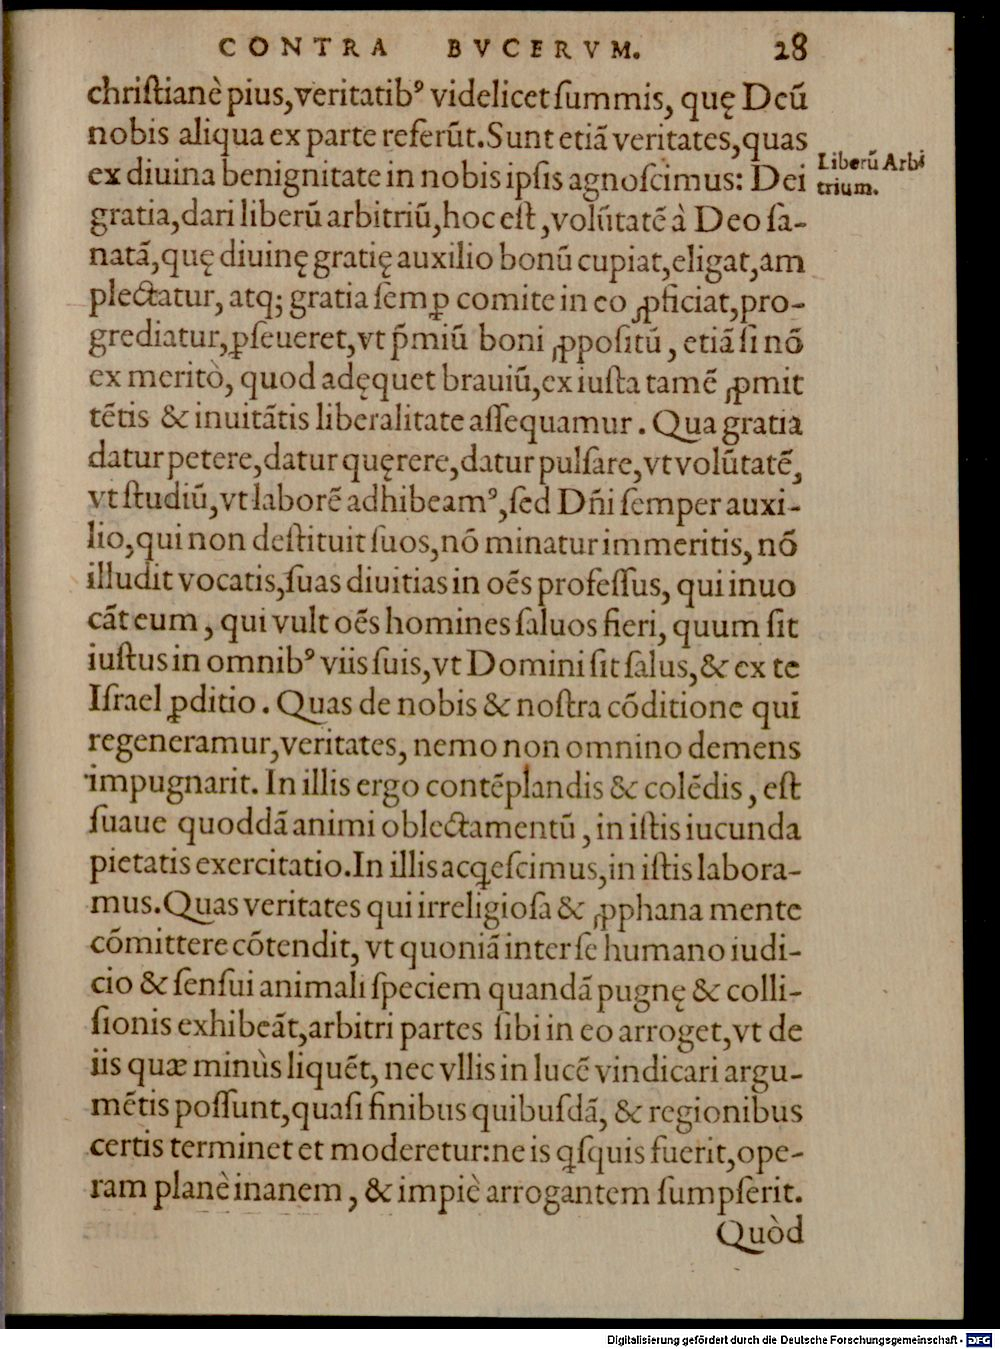 CONTRA BVCERVM. 28
christianè pius, veritatibꝰ videlicet summis, quę Deũ
nobis aliqua ex parte referũt. Sunt etiã veritates, quas
ex diuina benignitate in nobis ipsis agnoscimus: Dei
Liberũ Arbi
trium.
gratia, dari liberũ arbitriũ, hoc est, volũtatẽ à Deo sa-
natã, quę diuinę gratię auxilio bonũ cupiat, eligat, am
plectatur, atq; gratia semꝑ comite in eo ꝓficiat, pro-
grediatur, ꝑseueret, vt p̃miũ boni ꝓpositũ, etiã si nõ
ex meritò, quod adęquet brauiũ, ex iusta tamẽ ꝓmit
tẽtis & inuitãtis liberalitate assequamur. Qua gratia
datur petere, datur quęrere, datur pulsare, vt volũtatẽ,
vt studiũ, vt laborẽ adhibeamꝰ, sed Dñi semper auxi-
lio, qui non destituit suos, nõ minatur immeritis, nõ
illudit vocatis, suas diuitias in oẽs professus, qui inuo
cãt eum, qui vult oẽs homines saluos fieri, quum sit
iustus in omnibꝰ viis suis, vt Domini sit salus, & ex te
Israel ꝑditio. Quas de nobis & nostra cõditione qui
regeneramur, veritates, nemo non omnino demens
impugnarit. In illis ergo contẽplandis & colẽdis, est
suaue quoddã animi oblectamentũ, in istis iucunda
pietatis exercitatio. In illis acꝗescimus, in istis labora-
mus. Quas veritates qui irreligiosa & ꝓphana mente
cõmittere cõtendit, vt quoniã inter se humano iudi-
cio & sensui animali speciem quandã pugnę & colli-
sionis exhibeãt, arbitri partes sibi in eo arroget, vt de
iis quæ minùs liquẽt, nec vllis in lucẽ vindicari argu-
mẽtis possunt, quasi finibus quibusdã, & regionibus
certis terminet et moderetur: ne is ꝗsquis fuerit, ope-
ram planè inanem, & impiè arrogantem sumpserit.
Quòd
Digitalisierung gefördert durch die Deutsche Forschungsgemeinschaft - DFG